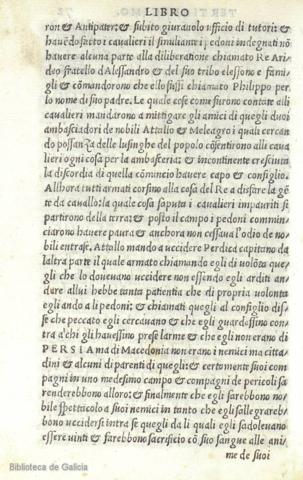 LIBRO
ron & Antipater; & subito giurauolo ufficio di tutori: &
hauēdo fatto i caualieri il simili anti i pedoni indegnati nō
hauere alcuna parte alla diliberatione chiamato Re Ari-
deo fratello d'Alessandro & del suo tribo elessono e fami-
gli & cōmandorono che ello fussi chiamato Philippo per
lo nome di suo padre. Le quale cose come furono contate alli
caualieri mandarono a mittigare gli amici di quegli duoi
ambasciadori de nobili Attallo & Meleagro i quali cercan
do possanza delle lusinghe del popolo cōsentirono alli caua
lieri ogni cosa per la ambasceria; & incontinente cresciuta
la discordia di quella cōmincio hauere capo & consiglio.
Allhora tutti armati corsino alla cosa del Re a disfare la gē
te da cauallo: la quale cosa saputa i caualieri impauriti se
partirono della terra; & posto il campo i pedoni commin-
ciarono hauere paura & anchora non cessaua l'odio de no-
bili entrase. Attallo mando a uccidere Perdica capitano da
laltra parte il quale armato chiamando egli di uolōta que
gli che lo doueuano uccidere non essendo egli arditi an-
dare allui hebbe tanta patientia che di propria uolonta
egli ando a li pedoni; & chiamati quegli al consiglio disse
che peccato egli cercauano & che egli guardessino con
tra a chi gli hauessino prese larme & che egli non erano di
PERSIA ma di Macedonia non erano i nemici ma citta-
dini & alcuni di parenti di quegli; & certamente suoi com
pagni in uno medesimo campo & compagni de pericoli sa
renderebbono alloro; & finalmente che egli sarebbono no-
bile spettacolo a suoi nemici in tanto che egli sallegrareb-
bono uccidersi intra se quegli da li quali egli sadoleuano
essere uinti & sarebbono sacrificio cō suo sangue alle ani-
me de suoi
Biblioteca de Galicia